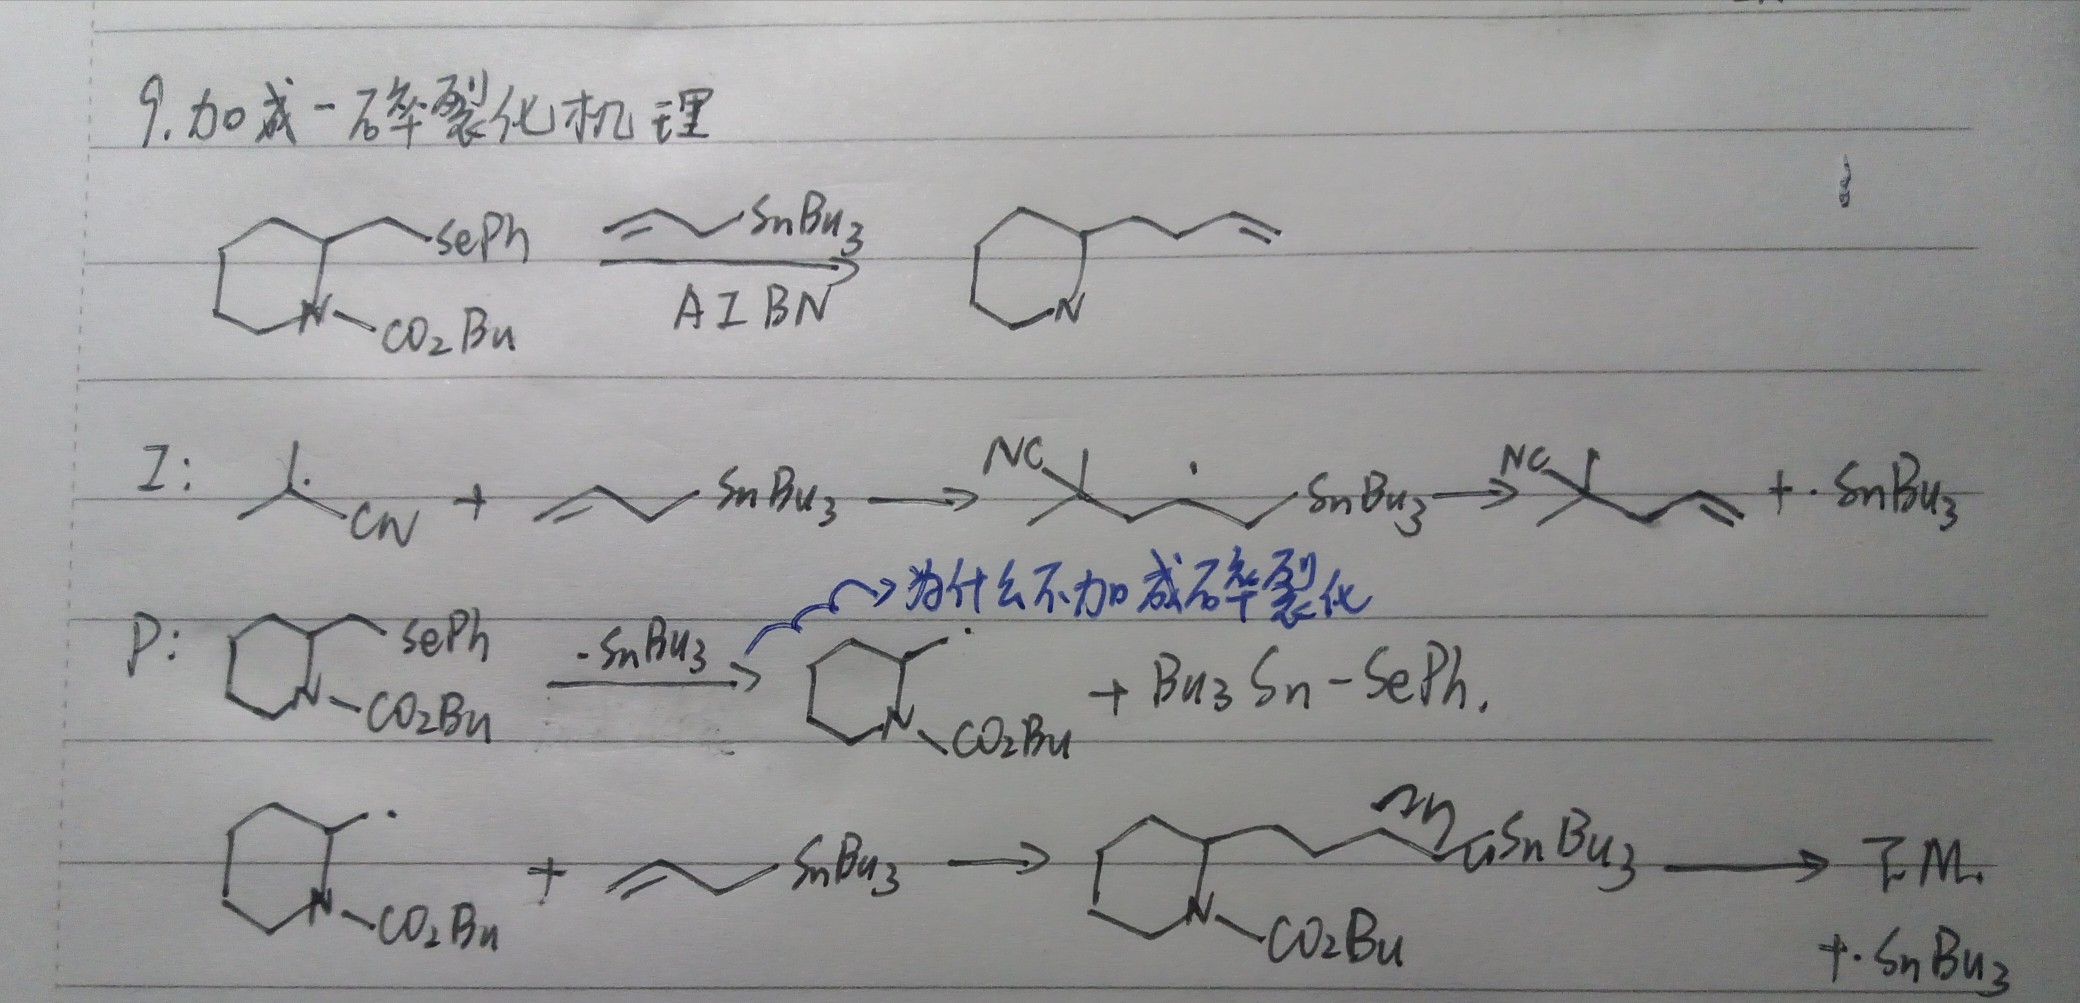 9.加成-碎裂化机理
SePh
N-CO2Bu
SnBu3
AIBN
N
I: CN + SnBu3 → NC SnBu3 → NC + ·SnBu3
→为什么不加成碎裂化
P: SePh N-CO2Bu ·SnBu3 → N CO2Bu + Bu3Sn-SePh.
N-CO2Bu + SnBu3 → N-CO2Bu SnBu3 → T.M.
+·SnBu3